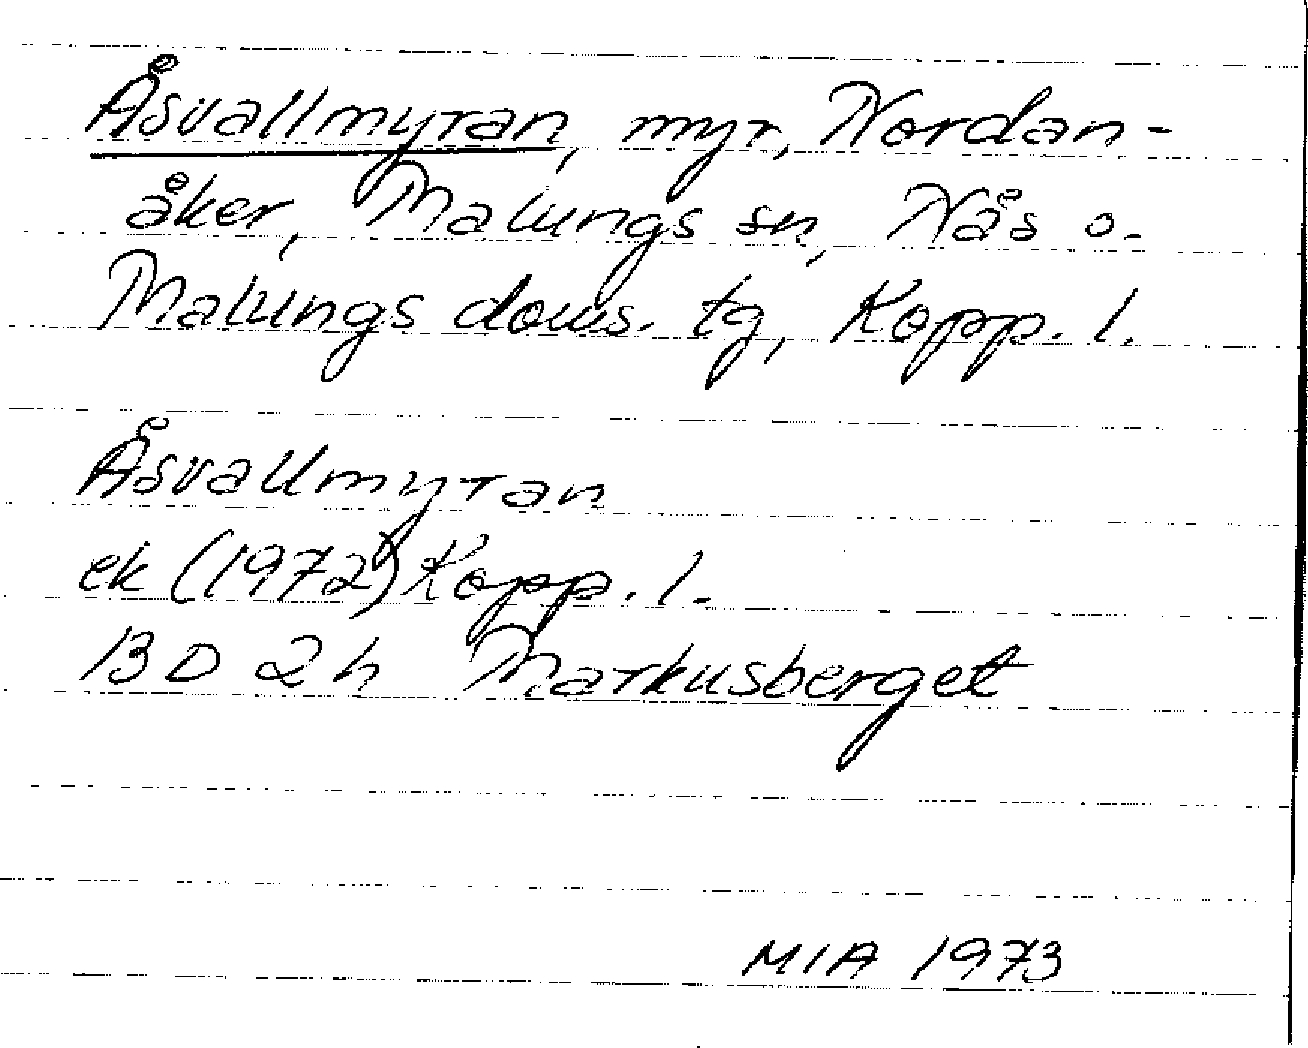 Åsvallmyran, myr, Nordan-
åker, Malungs sn, Nås o.
Malungs doms. tg, Kopp. l.
Åsvallmyran
ek (1972) Kopp. l.
13 D 2 h Markusberget
MIA 1973